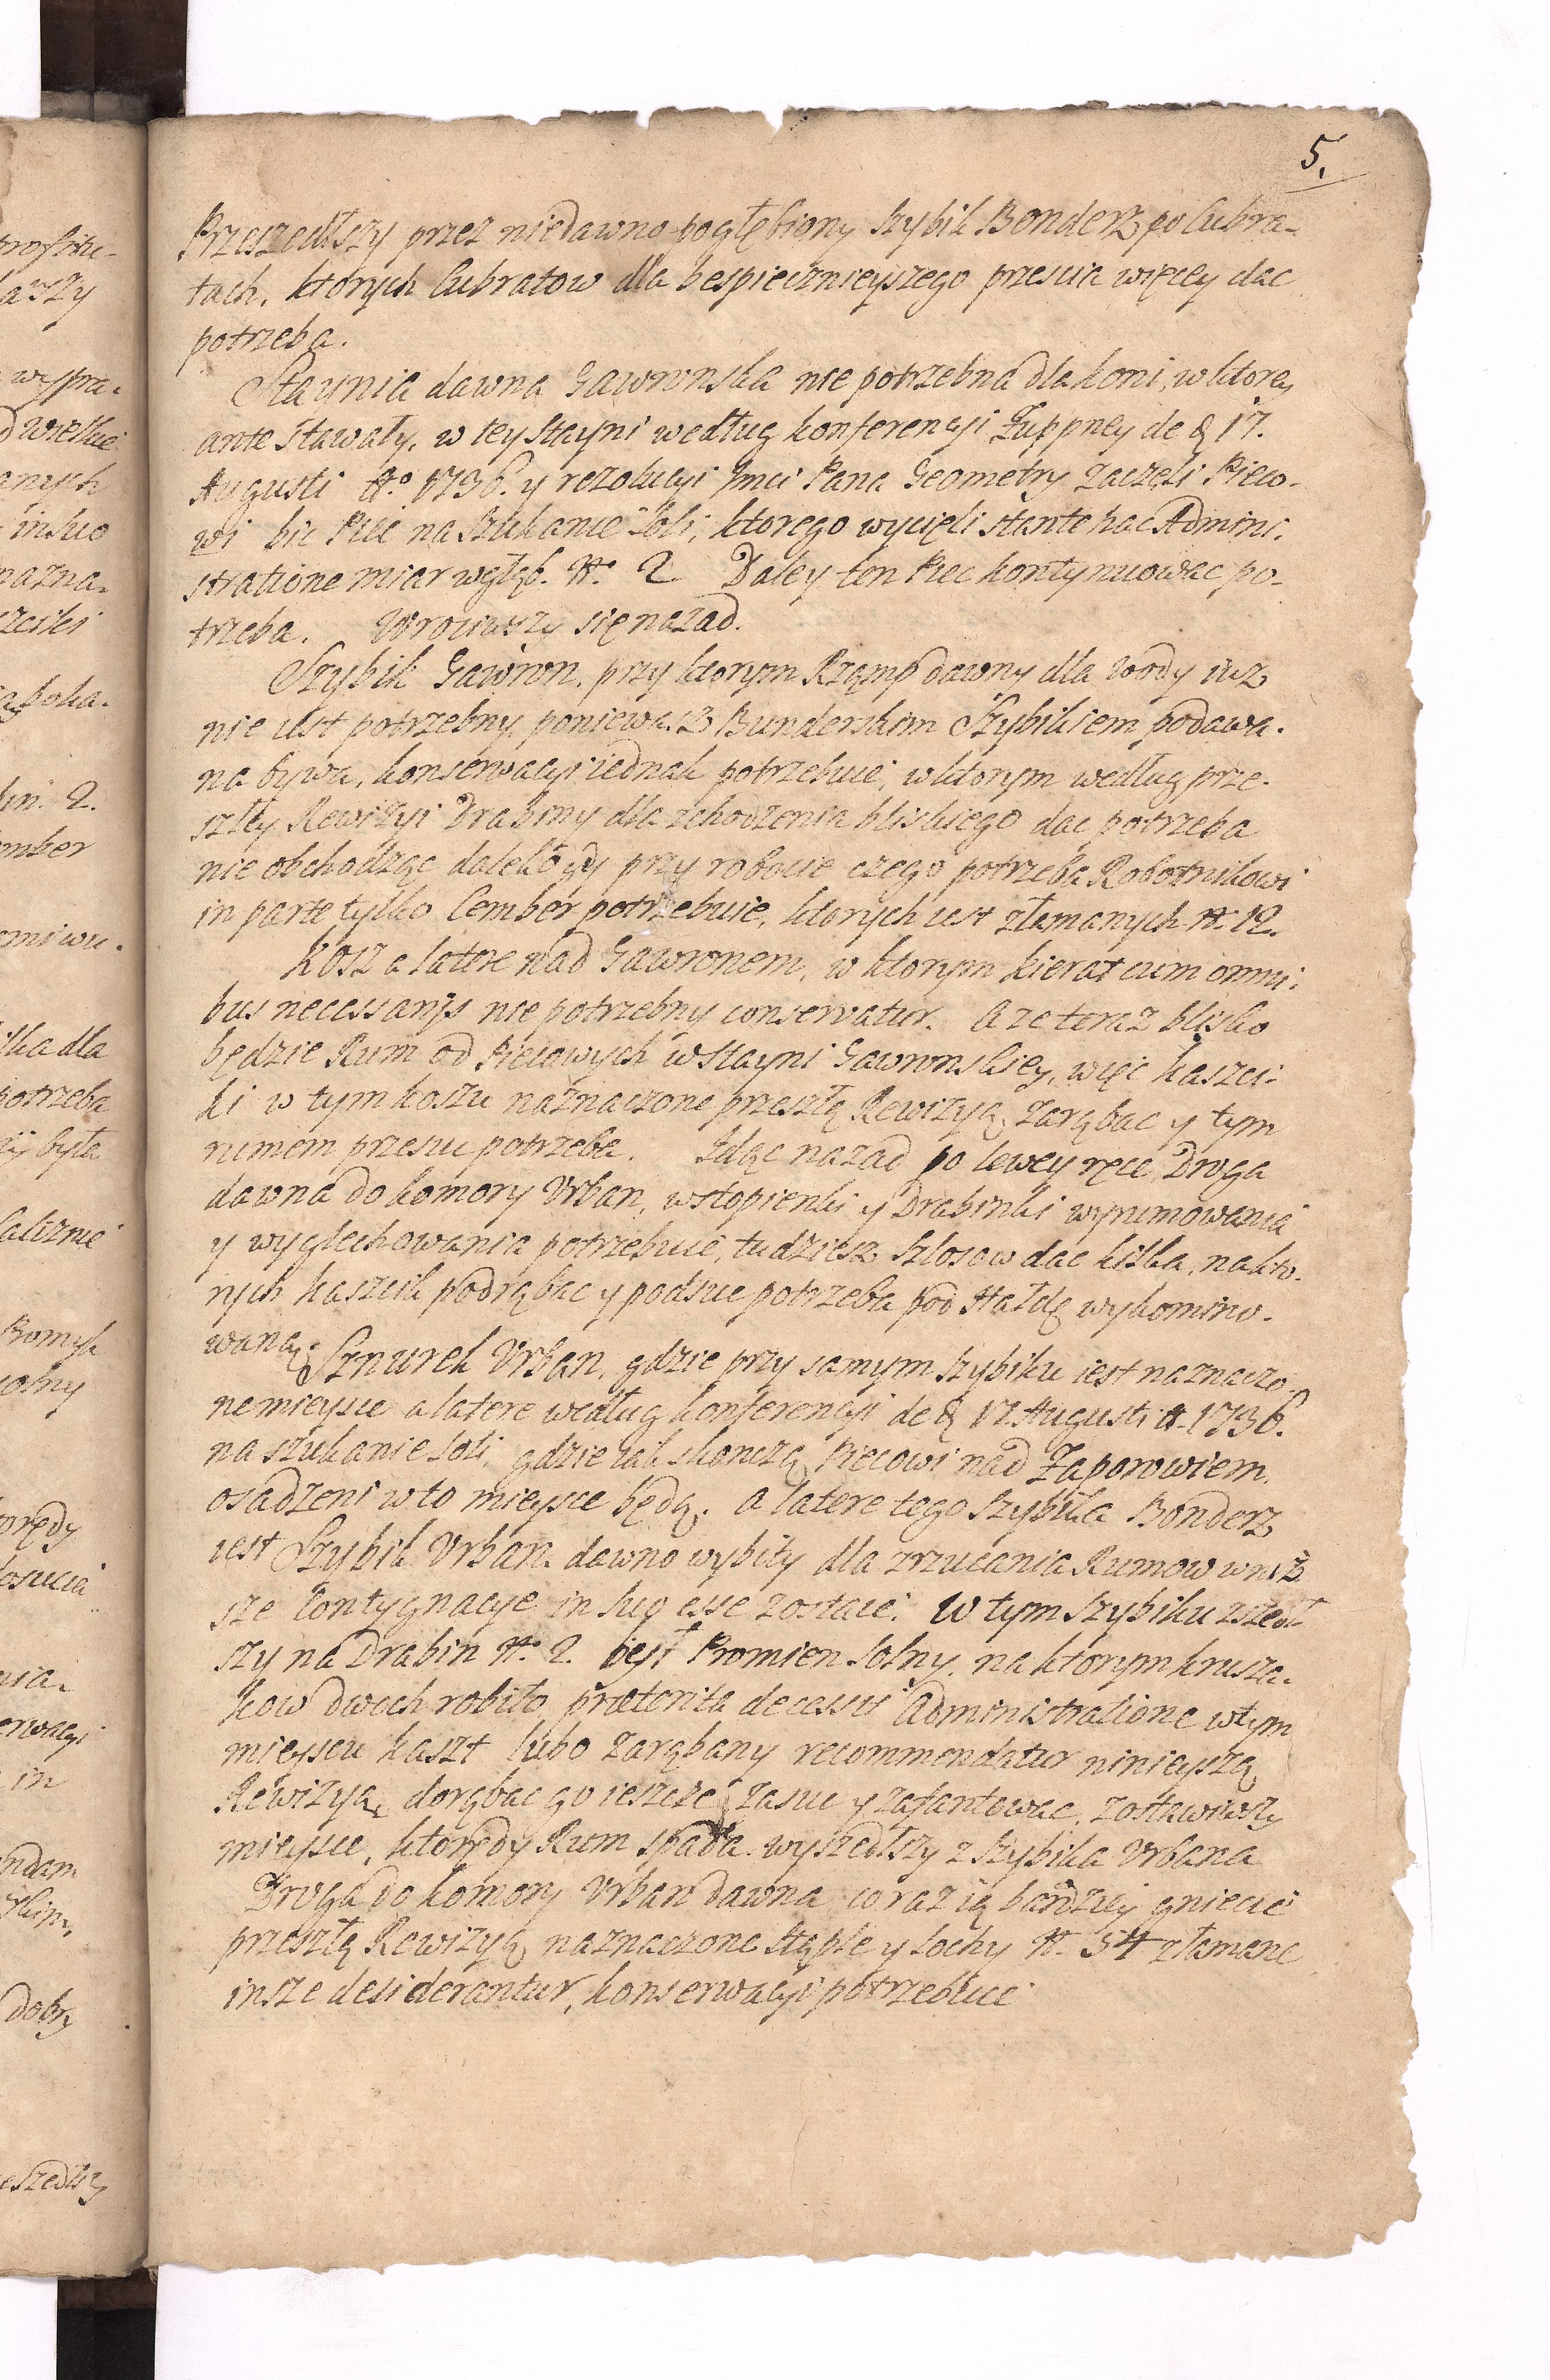 5.
Przeszedłszy przez niedawno pogłębiony Szybik Bonderz po Cubra-
tach, ktorych Cubratow dla bespiecznieyszego przescia więcey dac
potrzeba.
Staynia dawna Gawronska nie potrzebna dla koni, w ktorey
ante stawały, w tey stayni według konferencyi Zuppney de d 17.
Augusti Aº 1736. y rezolucyi Jmci Pana Geometry zaczęli Pieco-
wi bic Piec na szukanie Soli, ktorego wycięli stante hac Admini-
stratione miar wgłąb. Nº 2 Daley ten Piec kontynuowac po-
trzeba. Wrociwszy się nazad.
Szybik Gawron, przy ktorym Rząmp dawny dla wody iuz
nie iest potrzebny, poniewasz Bunderskim Szybikiem podawa-
na bywa, konserwacyi iednak potrzebuie, w ktorym według prze-
szłey Rewizyi Drabiny dla schodzenia bliskiego dac potrzeba
nie obchodząc daleko gdy przy robocie czego potrzeba Robotnikowi
in parte tylko Cember potrzebuie, ktorych iest złamanych Nº 12.
Kosz a latere nad Gawronem, w ktorym kierat cum omni-
bus necessarijs nie potrzebny conservatur. A ze teraz blisko
będzie Rum od Piecowych w Stayni Gawronskiey, więc kaszci-
ki w tym koszu naznaczone przeszłą Rewizyą, zarąbac y tym
rumem przesuc potrzeba. Idąc nazad po lewey ręce Droga
dawna do komory Urban, w stopienki y Drabinki wyrumowania
y wyglechowania potrzebuie, tudziesz Szlosow dac kilka, na kto-
rych kaszcik podrąbac y podsuc potrzeba pod Hałdę wykomino-
waną.
Sznurek Urban, gdzie przy samym szybiku iest naznaczo-
ne mieysce a latere według konferencyi de d 17. Augusti A. 1736.
na szukanie soli, gdzie iak skonczą Piecowi nad Zaporowiem,
osadzeni w to mieysce będą. a latere tego Szybika Bonderz
iest Szybik Urban dawno wybity dla zrzucania Rumow w niż-
sze Contygnacye in suo esse zostaie. W tym Szybiku zszedł-
szy na Drabin Nº 2. był Promien Solny, na ktorym krusza-
kow dwoch robiło, præterita decessit Administratione w tym
mieyscu kaszt lubo zarąbany recommendatur ninieyszą
Rewizyą, dorąbac go ieszcze zasuc y zafantowac, zostawiwszy
mieysce, ktorędy Rum spada. wyszedłszy z Szybika Urbana
Droga do komory Urban dawna coraz ią bardziey gniecie
przeszłą Rewizyą naznaczone Stęple y Sochy Nº 54 złamane
insze desiderantur, konserwacyi potrzebuie